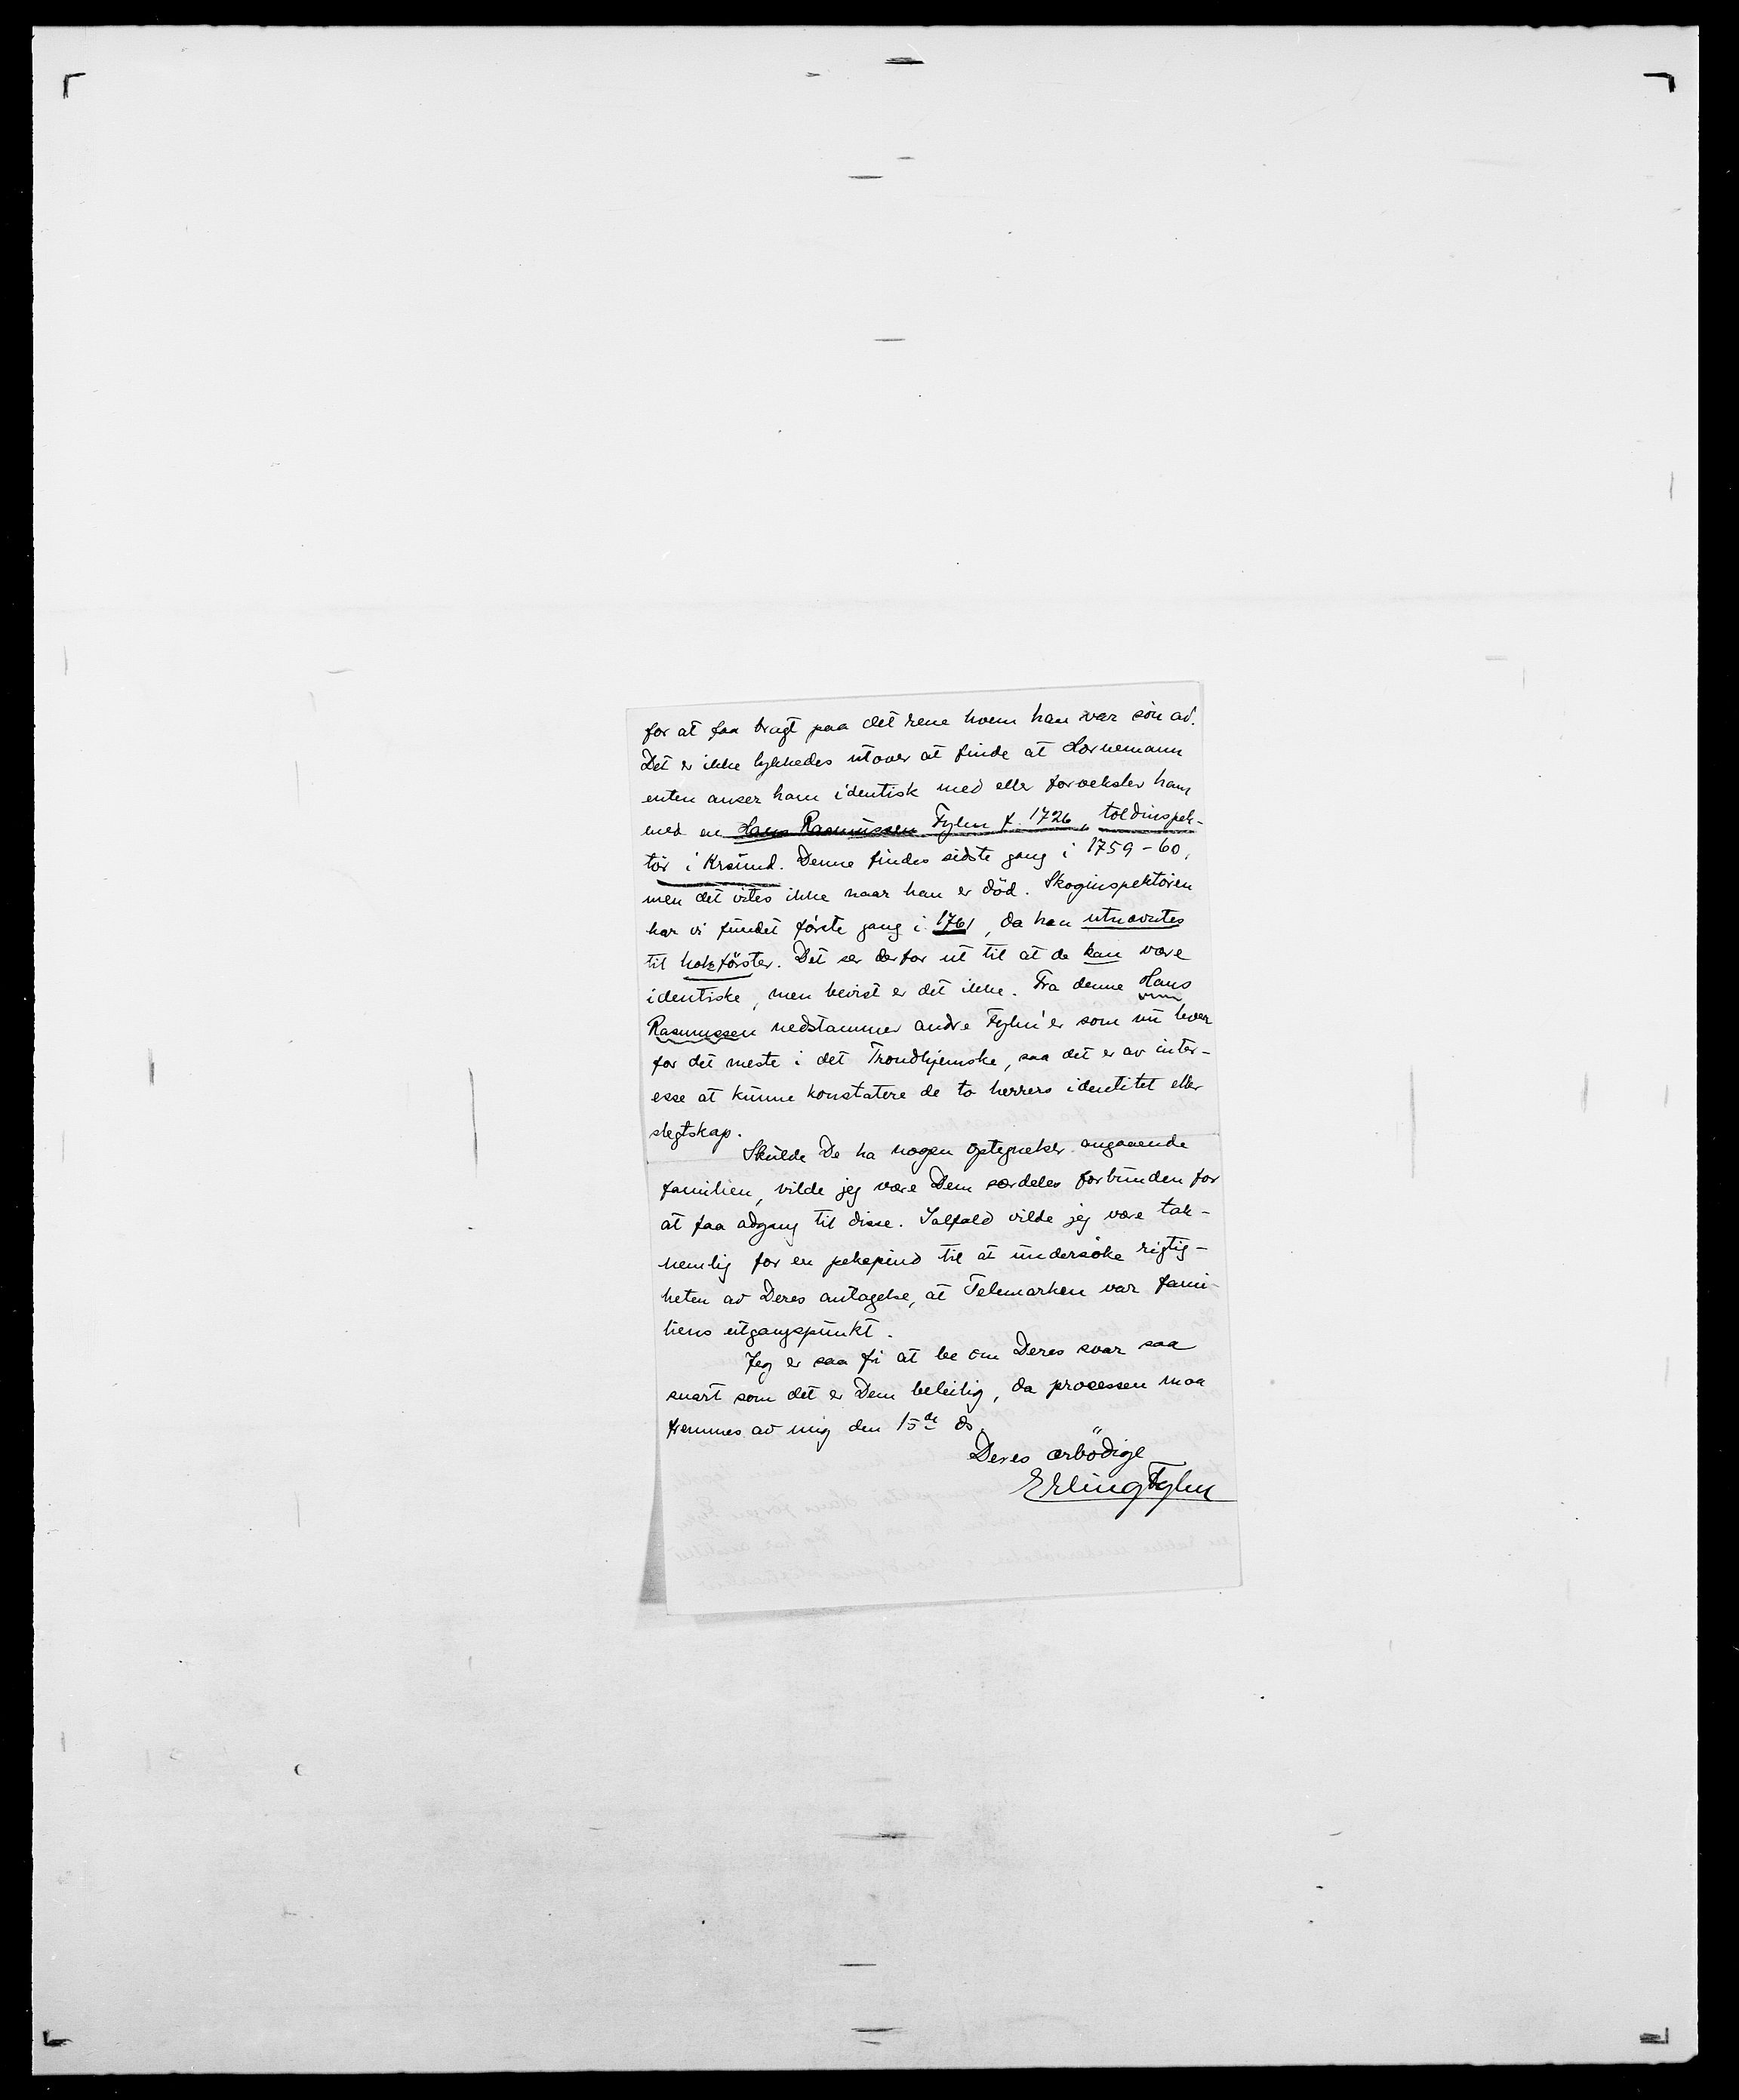 for at faa bragt paa det rene hvem han var sön av.
Det er ikke lykkedes utover at finde at Hornemann
enten anser ham identisk med eller forveksler ham
med en Hans Rasmussen Fylm f. 1726, toldinspek-
tör i Krsund. Denne findes sidste gang i 1759-60,
men det vites ikke naar han er död. Skoginspektören
har vi fundet förste gang i 1761, da han utnævntes
til holzförster. Det ser derfor ut til at de kan være
identiske, men bevist er det ikke. Fra denne Hans
Rasmussen nedstammer andre Fylm'er som nu lever
for det meste i det Trondhjemske, saa det er av inter-
esse at kunne konstatere de to herrers identitet eller
slegtskap.
Skulde De ha nogen optegnelser angaaende
familien, vilde jeg være Dem særdeles forbunden for
at faa adgang til disse. Ialfald vilde jeg være tak-
nemlig for en pekepind til at undersöke rigtig-
heten av Deres antagelse, at Telemarken var fami-
liens utgangspunkt.
Jeg er saa fri at be om Deres svar saa
snart som det er Dem beleilig, da processen maa
fremmes av mig den 15de ds.
Deres ærbödige
Erling Fylm